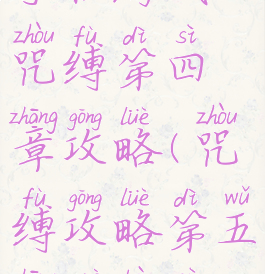 zhòu fù dì sì
咒缚第四
zhāng gōng lüè zhòu
章攻略(咒
fù gōng lüè dì wǔ
缚攻略第五